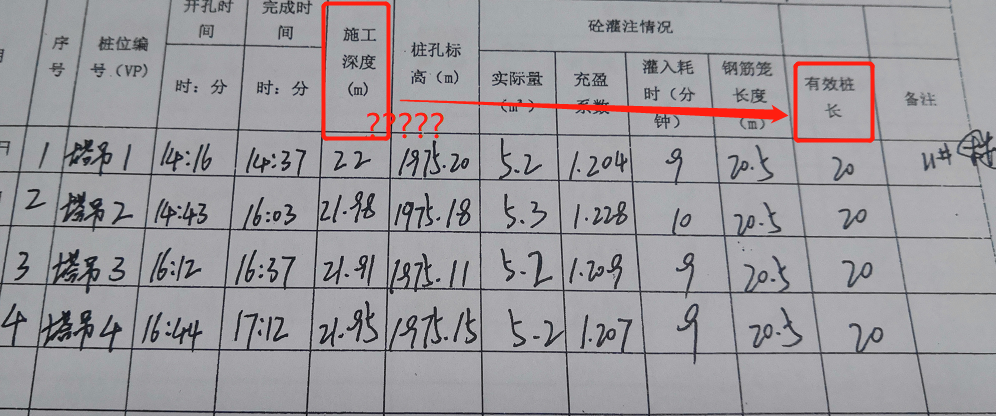 序号 桩位编号（VP） 开孔时间 完成时间 施工深度（m） 桩孔标高（m） 砼灌注情况 有效桩长 备注
时：分 时：分 实际量（m³） 充盈系数 灌入耗时（分钟） 钢筋笼长度（m）
?????
1 塔吊1 14:16 14:37 22 1975.20 5.2 1.204 9 20.5 20 11#
2 塔吊2 14:43 16:03 21.98 1975.18 5.3 1.228 10 20.5 20
3 塔吊3 16:12 16:37 21.91 1975.11 5.2 1.209 9 20.5 20
4 塔吊4 16:44 17:12 21.95 1975.15 5.2 1.207 9 20.5 20